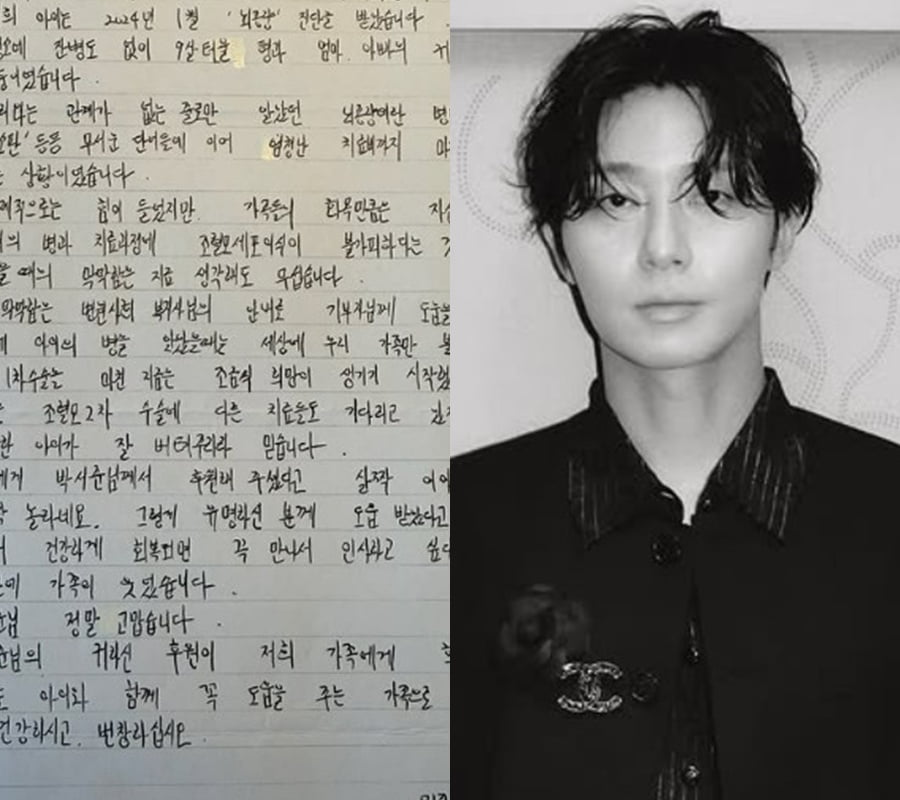 희 아이는 2024년 1월 '뇌종양' 진단을 받았습니다
잔병도 없이 9살터울 형과 엄마 아빠의
둥이였습니다.
관계가 없는 줄로만 알았던 뇌종양이란
등등 무서운 단어들에 이어 엄청난 치료비까지
상황이였습니다.
힘이 들었지만. 가족들의 화목만큼은
병과 치료과정에 조혈모세포이식이 불가피하다는
때의 막막함은 지금 생각해도 무섭습니다.
막막함은 병원사회 복지사님의 안내로 기부자님께 도움을
아이의 병을 알았을때는 세상에 우리 가족만
1차수술을 마친 지금은 조금씩 희망이 생기기
조혈모2차 수술에 다른 치료들도 기다리고
한 아이가 잘 버텨주리라 믿습니다.
에게 박서준님께서 후원해 주셨다고 살짝
놀라네요. 그렇게 유명하신 분께 도움 받았다고
건강하게 회복되면 꼭 만나서 인사하고
가족이 웃었습니다.
님 정말 고맙습니다.
님의 귀하신 후원이 저희 가족에게
아이와 함께 꼭 도움을 주는 가족으로
건강하시고. 번창하십시오.